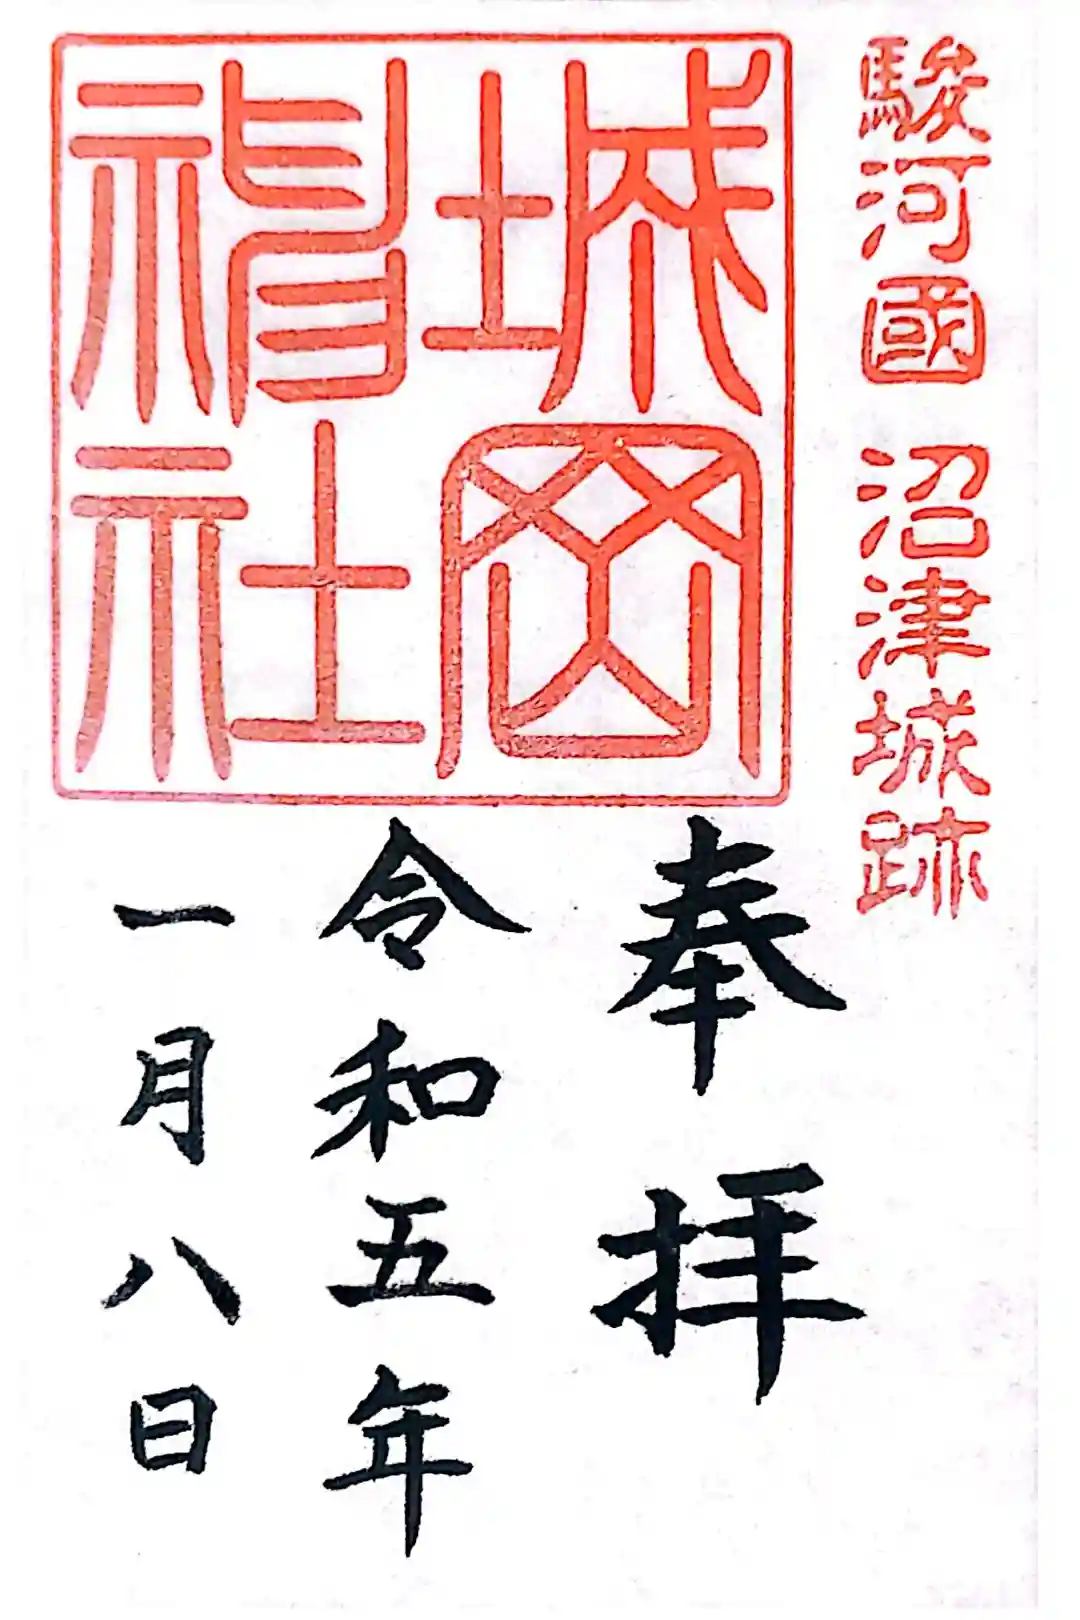 駿河國 沼津城跡
城岡
神社
奉拝
令和五年
一月八日